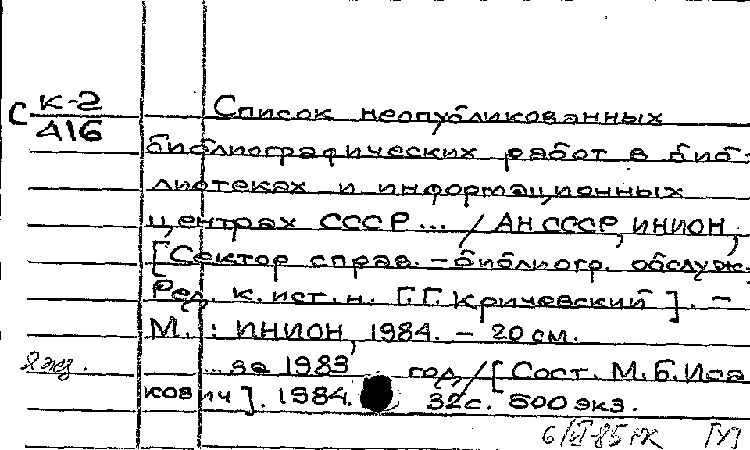 С К-2/416 Список неопубликованных
библиографических работ в биб-
лиотеках и информационных
центрах СССР ... / АН СССР, ИНИОН,
[Сектор справ. - библиогр. обслуж.
Ред. к. ист. н. Г.Г. Кричевский]. -
М.: ИНИОН, 1984. - 20 см.
2 экз. ... за 1983 год / [Сост. М.Б. Иса
кович]. 1984. 32с. 500 экз.
6/VI-85